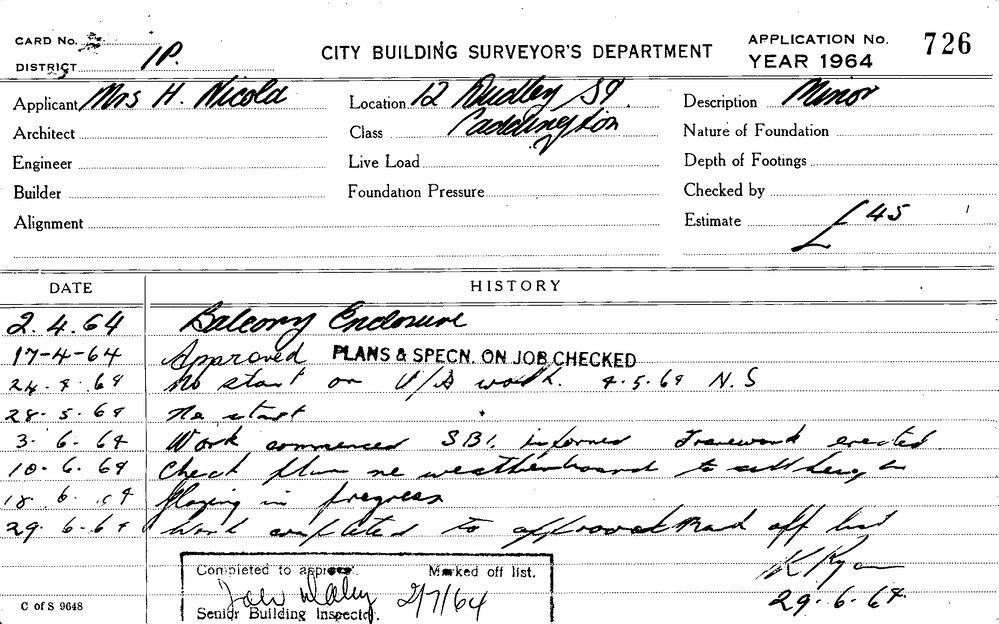 CARD No.
DISTRICT 1P.
CITY BUILDING SURVEYOR'S DEPARTMENT
APPLICATION No. 726
YEAR 1964
Applicant Mrs H. Nicola
Location 12 Dudley St
Paddington
Description Minor
Architect
Class
Nature of Foundation
Engineer
Live Load
Depth of Footings
Builder
Foundation Pressure
Checked by
Alignment
Estimate £45
DATE HISTORY
2.4.64 Balcony Enclosure
17-4-64 Approved PLANS & SPECN. ON JOB CHECKED
24.4.64 No start on work. 4.5.64 N.S
28.5.64 No start
3.6.64 Work commenced SBI. informed Framework erected
10.6.64 Check plan re weatherboard to
18.6.64 Glazing in progress
29.6.64 Work completed to approval Mark off list
K Ryan
29.6.64
Completed to approval. Marked off list.
2/7/64
Senior Building Inspector.
C of S 9648